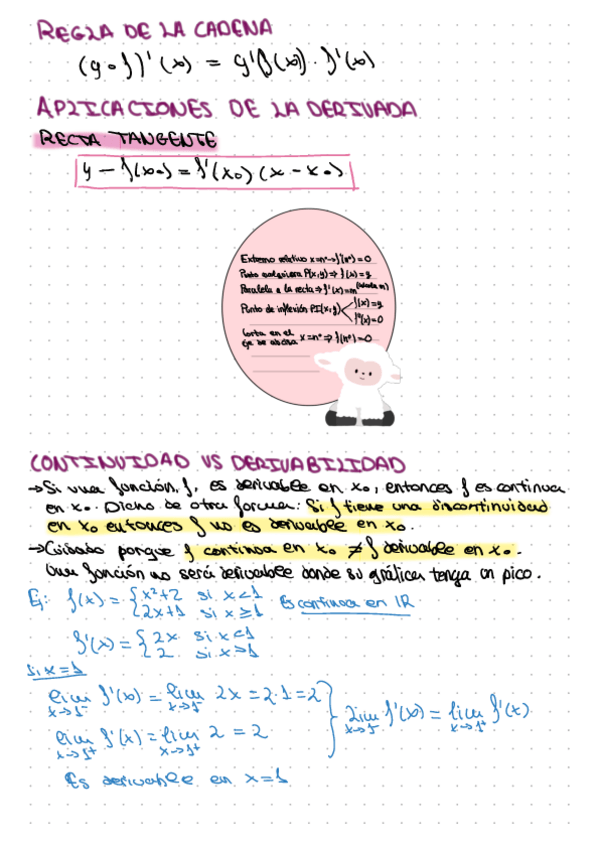 REGLA DE LA CADENA
(g∘f)'(x) = g'(f(x)) · f'(x)
APLICACIONES DE LA DERIVADA
RECTA TANGENTE
y - f(x₀) = f'(x₀) (x - x₀)
Extremo relativo x=nº → f'(nº) = 0
Punto cualquiera P(x,y) ⇒ f(x) = y
Paralela a la recta ⇒ f'(x) = m
Punto de inflexión PI(x,y) f(x) = y
f''(x) = 0
Corta en el
eje de abcisa x=nº ⇒ f(nº) = 0
CONTINUIDAD VS DERIVABILIDAD
→ Si una función, f, es derivable en x₀, entonces f es continua
en x₀. Dicho de otra forma: Si f tiene una discontinuidad
en x₀ entonces f no es derivable en x₀.
→ Cuidado porque f continua en x₀ ≠ f derivable en x₀.
Una función no será derivable donde su gráfica tenga un pico.
Ej: f(x) = { x²+2 si x<1
2x+1 si x≥1 Es continua en IR
f'(x) = { 2x si x<1
2 si x>1
Si x=1
lim x→1⁻ f'(x) = lim x→1⁻ 2x = 2·1 = 2
lim x→1⁺ f'(x) = lim x→1⁺ 2 = 2
lim x→1⁻ f'(x) = lim x→1⁺ f'(x)
Es derivable en x=1